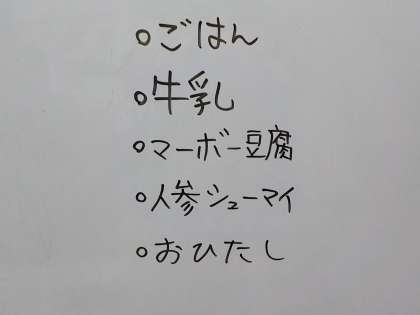 ○ごはん
○牛乳
○マーボー豆腐
○人参シューマイ
○おひたし